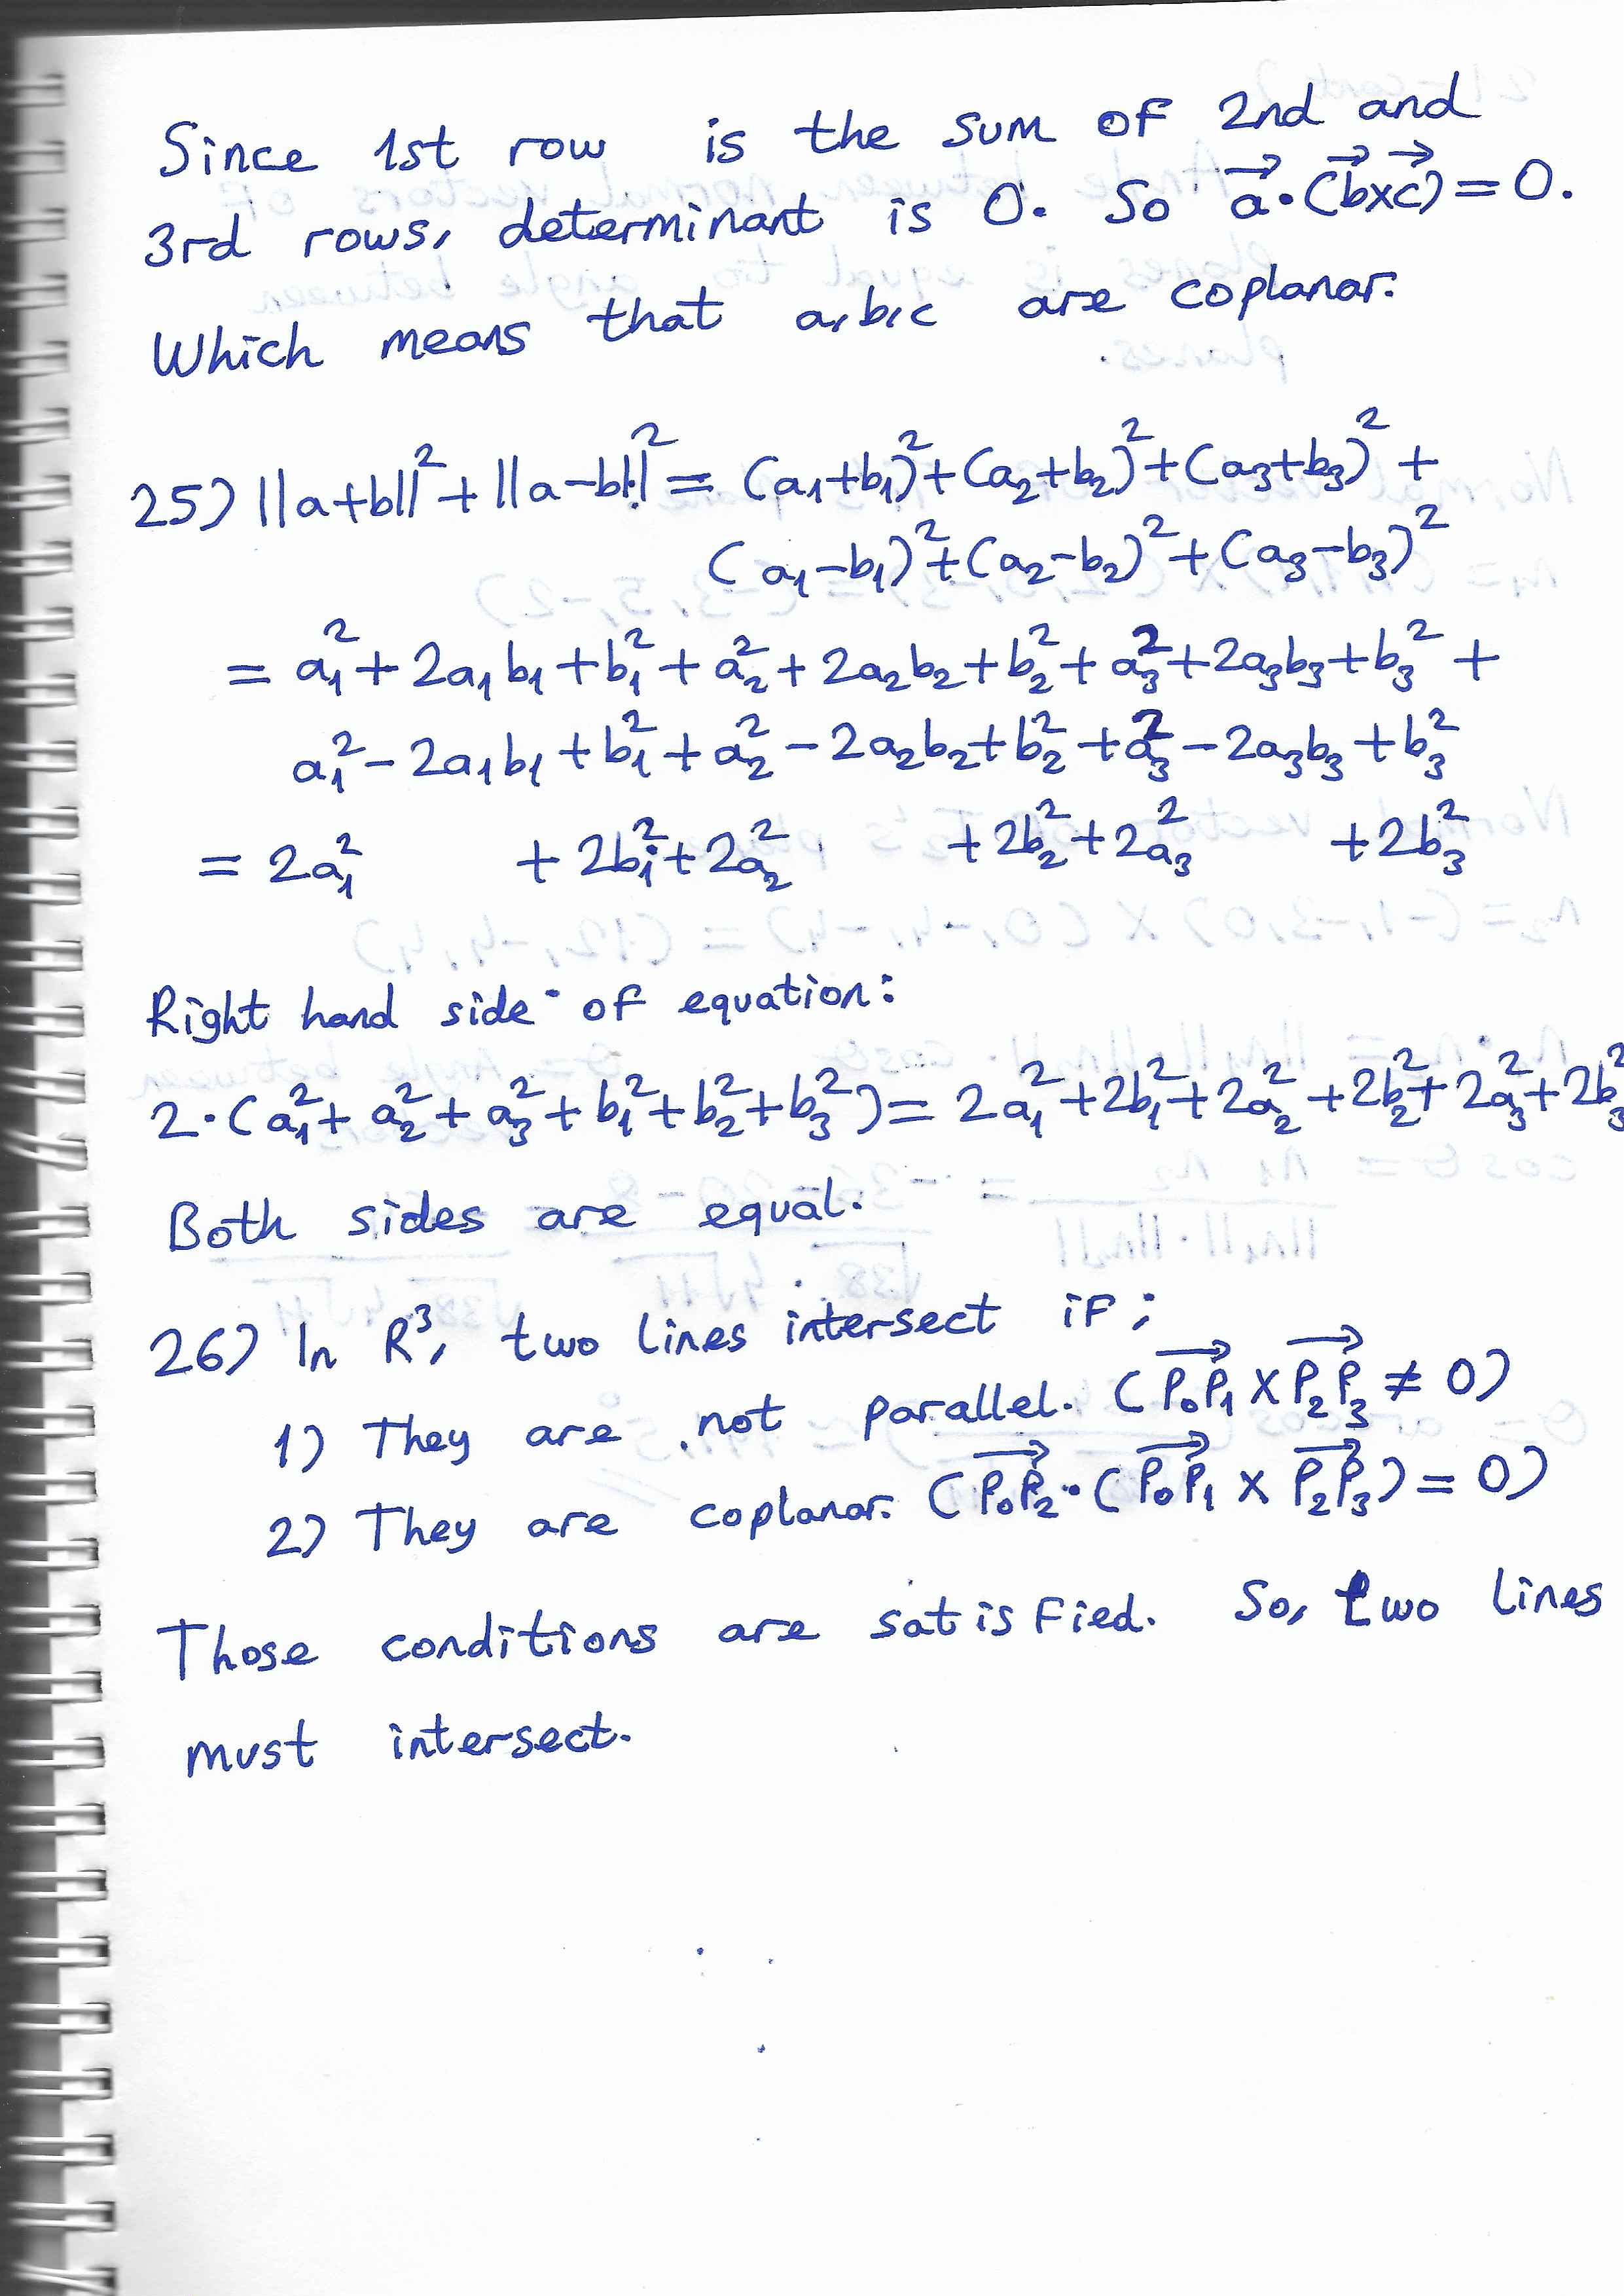 Since 1st row is the sum of 2nd and
3rd rows, determinant is 0. So a⃗·(b⃗×c⃗)=0.
Which means that a,b,c are coplanar.
25) ||a+b||²+||a-b||² = (a₁+b₁)²+(a₂+b₂)²+(a₃+b₃)² +
(a₁-b₁)²+(a₂-b₂)²+(a₃-b₃)²
= a₁²+2a₁b₁+b₁²+a₂²+2a₂b₂+b₂²+a₃²+2a₃b₃+b₃² +
a₁²-2a₁b₁+b₁²+a₂²-2a₂b₂+b₂²+a₃²-2a₃b₃+b₃²
= 2a₁² +2b₁²+2a₂² +2b₂²+2a₃² +2b₃²
Right hand side of equation:
2·(a₁²+a₂²+a₃²+b₁²+b₂²+b₃²)= 2a₁²+2b₁²+2a₂²+2b₂²+2a₃²+2b₃²
Both sides are equal.
26) In R³, two lines intersect if;
1) They are not parallel. (P₀P₁→ × P₂P₃→ ≠ 0)
2) They are coplanar. (P₀P₂→·(P₀P₁→ × P₂P₃→)=0)
Those conditions are satisfied. So, two lines
must intersect.